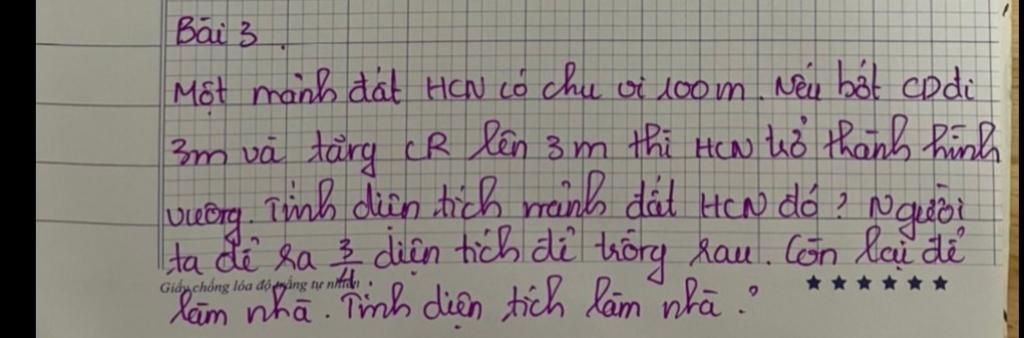 Bài 3.
Một mảnh đất HCN có chu vi 100m. Nếu bớt CD đi
3m và tăng CR lên 3m thì HCN trở thành hình
vuông. Tính diện tích mảnh đất HCN đó? Người
ta để ra 3/4 diện tích để trồng rau. Còn lại để
Giấy chống lóa độ trắng tự nhiên
làm nhà. Tính diện tích làm nhà?